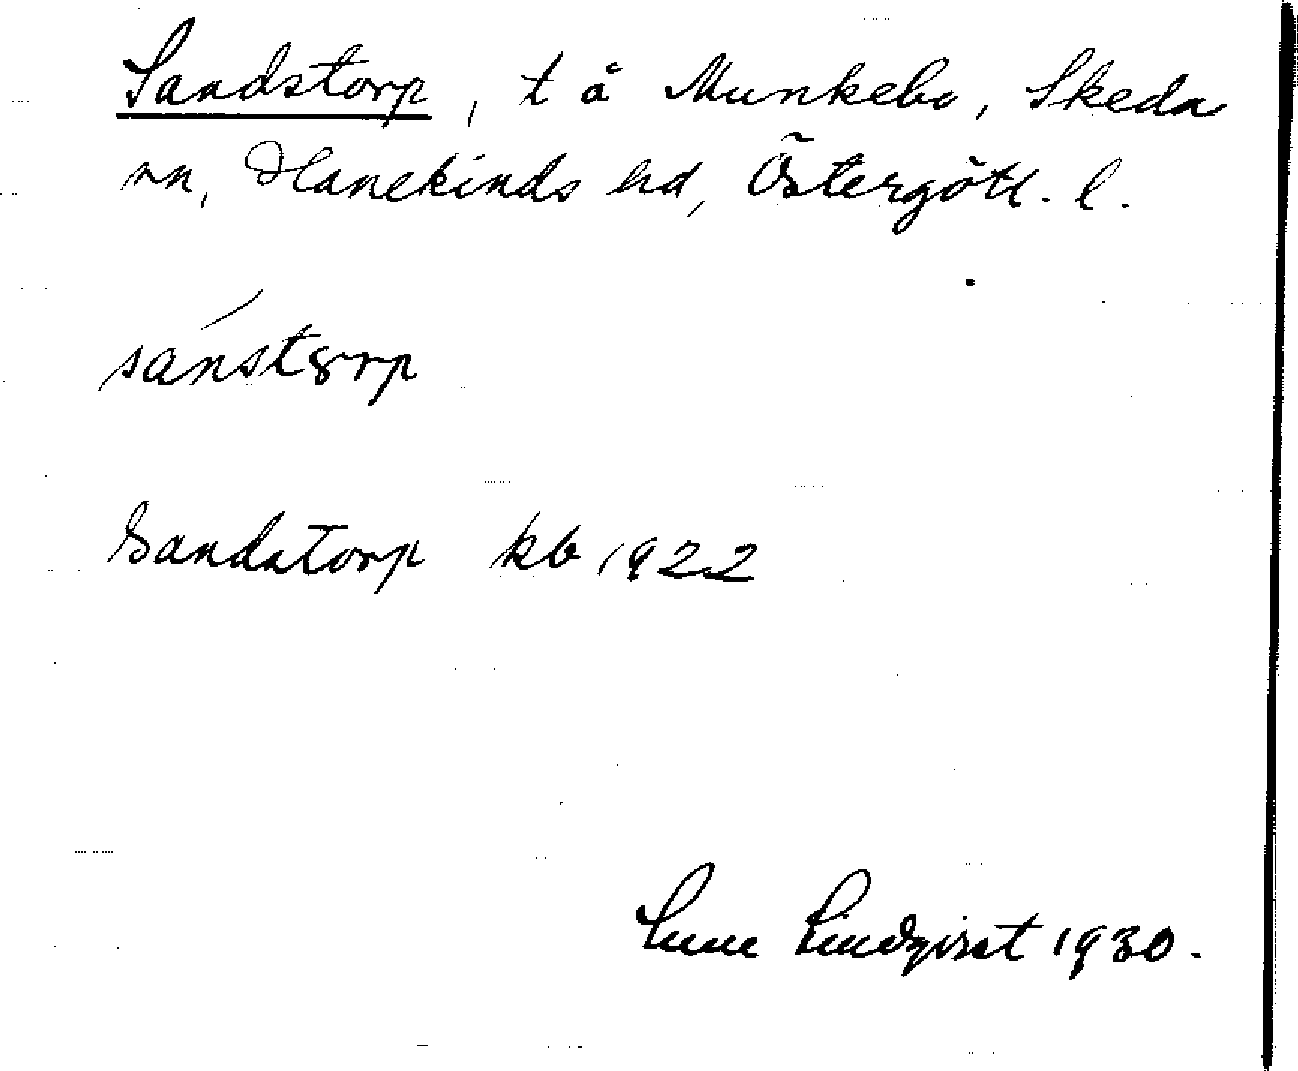 Sandstorp, t å Munkebo, Skeda
sn, Hanekinds hd, Östergötl. l.
sánstȣrp
Sandstorp kb 1922
Sune Lindqvist 1930.